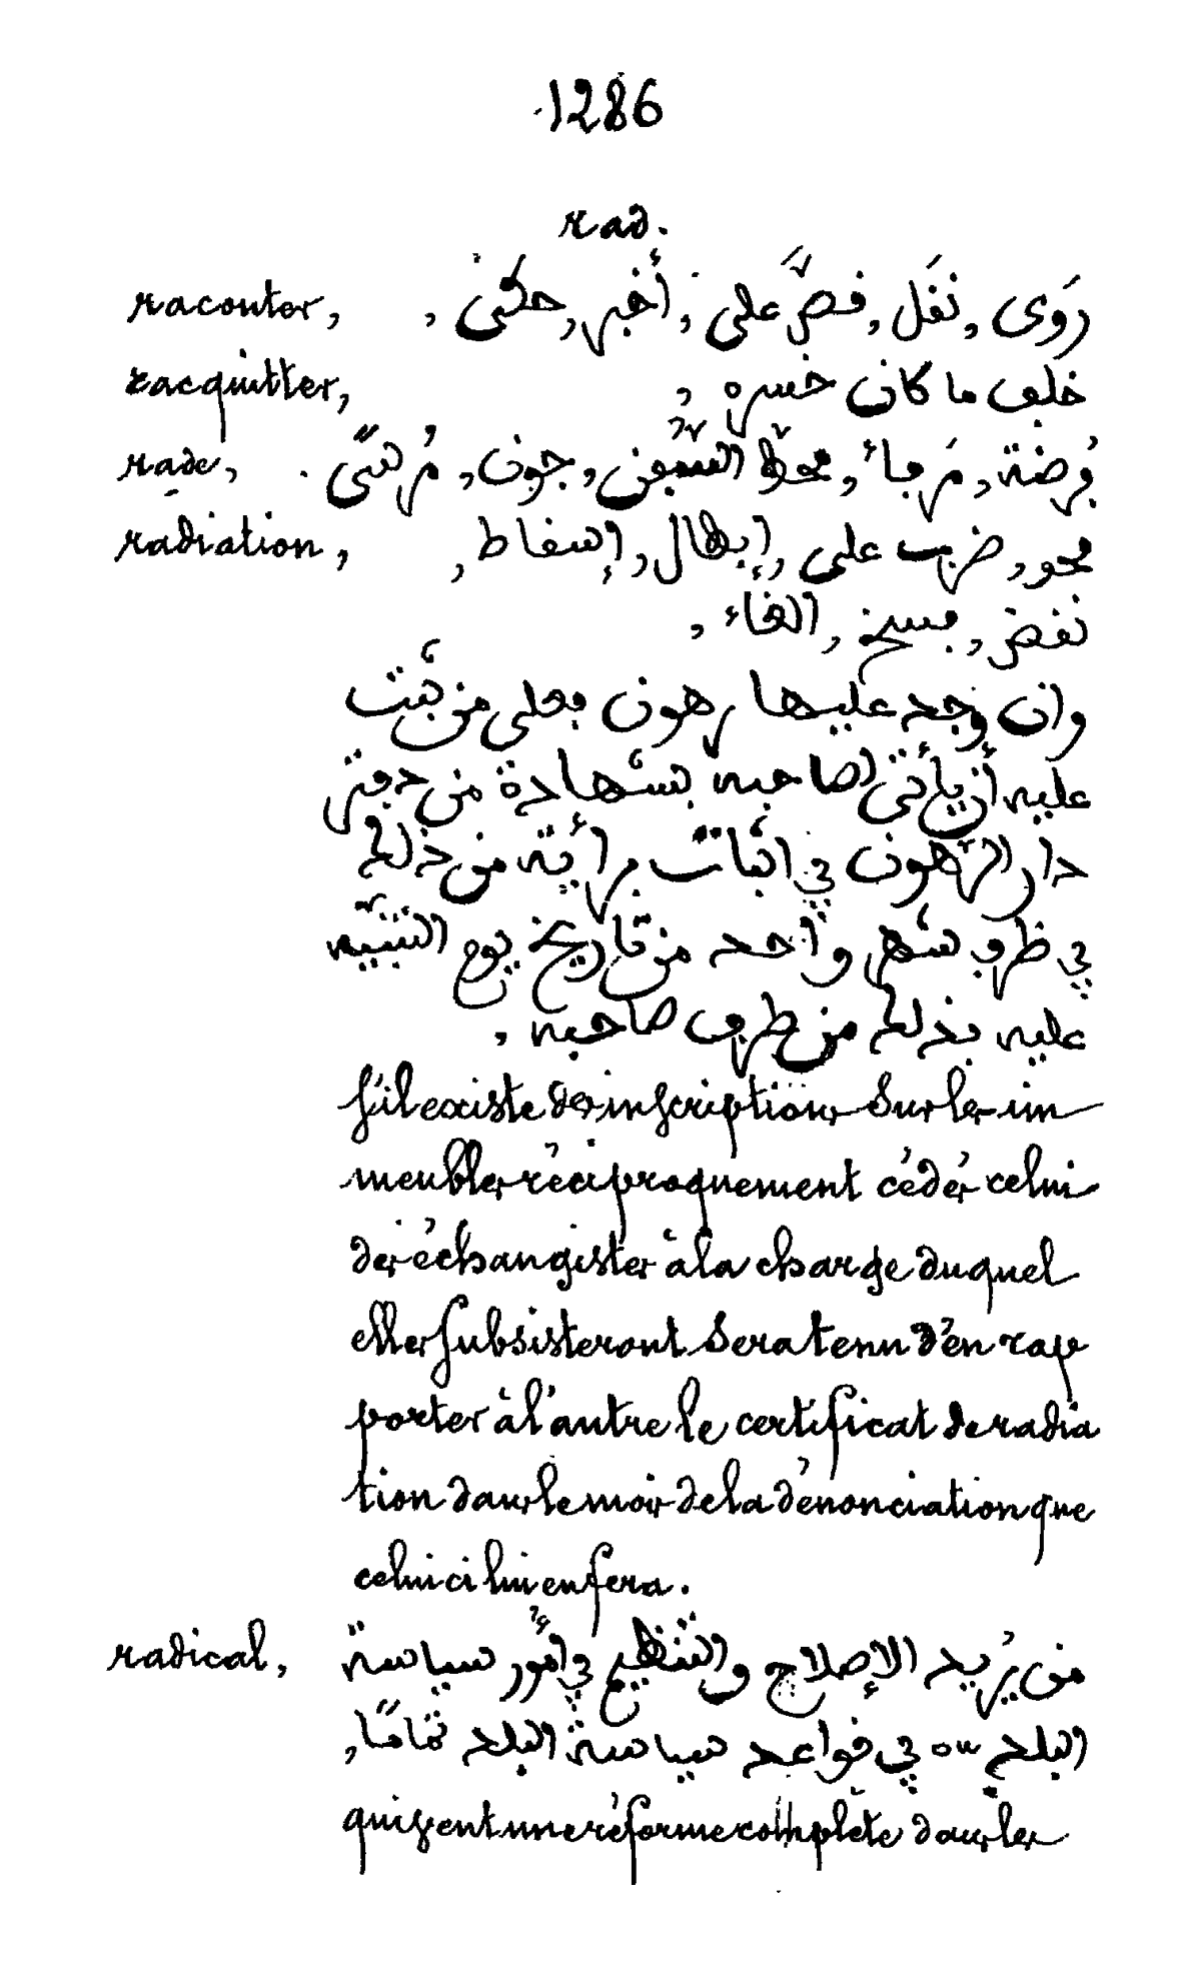 1286
rad.
raconter, رَوَى, نقَل, قصَّ على, أخبر, حكى,
racquitter, خلف ما كان خسره,
rade, فُرضة, مَرجأ, محطّ السُّفن, جون, مُرسًى.
radiation, محو, ضرب على, إبطال, إسقاط,
نقض, فسخ, الغاء,
وان وجد عليها رهون فعلى من ثبت
عليه أن يأتي لصاحبه بشهادة من دفتر
دار الرّهون في اثبات برأيته من ذلك
في ظرف شهر واحد من تاريخ يوم التنبيه
عليه بذلك من طرف صاحبه,
s'il existe des inscriptions sur les im
meubles réciproquement cédés celui
des échangistes à la charge duquel
elles subsisteront sera tenu d'en rap
porter à l'autre le certificat de radia
tion dans le mois de la dénonciation que
celui ci lui en fera.
radical, من يُريد الإصلاح والتنظيم في أمُور سياسة
البلد في قواعد سياسة البلد تمامًا,
qui veut une réforme complète dans les